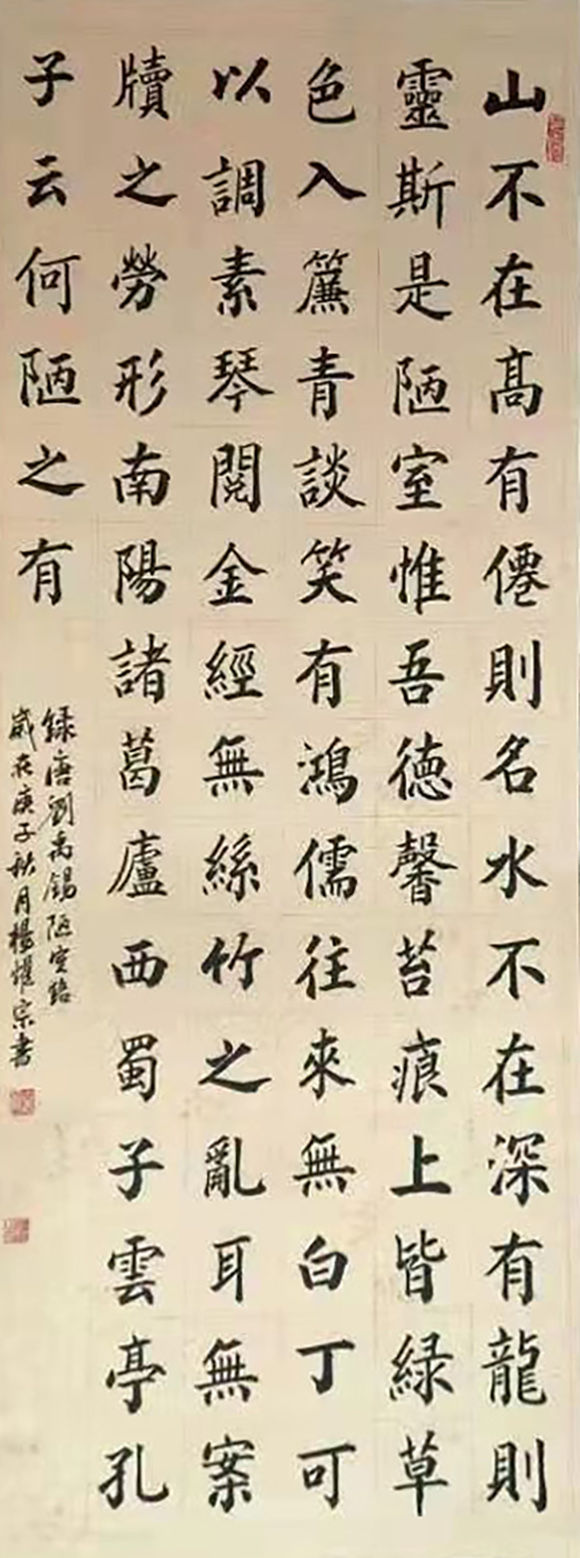 山不在髙有僊則名水不在深有龍則
靈斯是陋室惟吾徳馨苔痕上皆緑草
色入簾青談笑有鴻儒往來無白丁可
以調素琴閲金經無絲竹之亂耳無案
牘之勞形南陽諸葛廬西蜀子雲亭孔
子云何陋之有
録唐劉禹錫陋室銘
歲在庚子秋月楊燿宗書